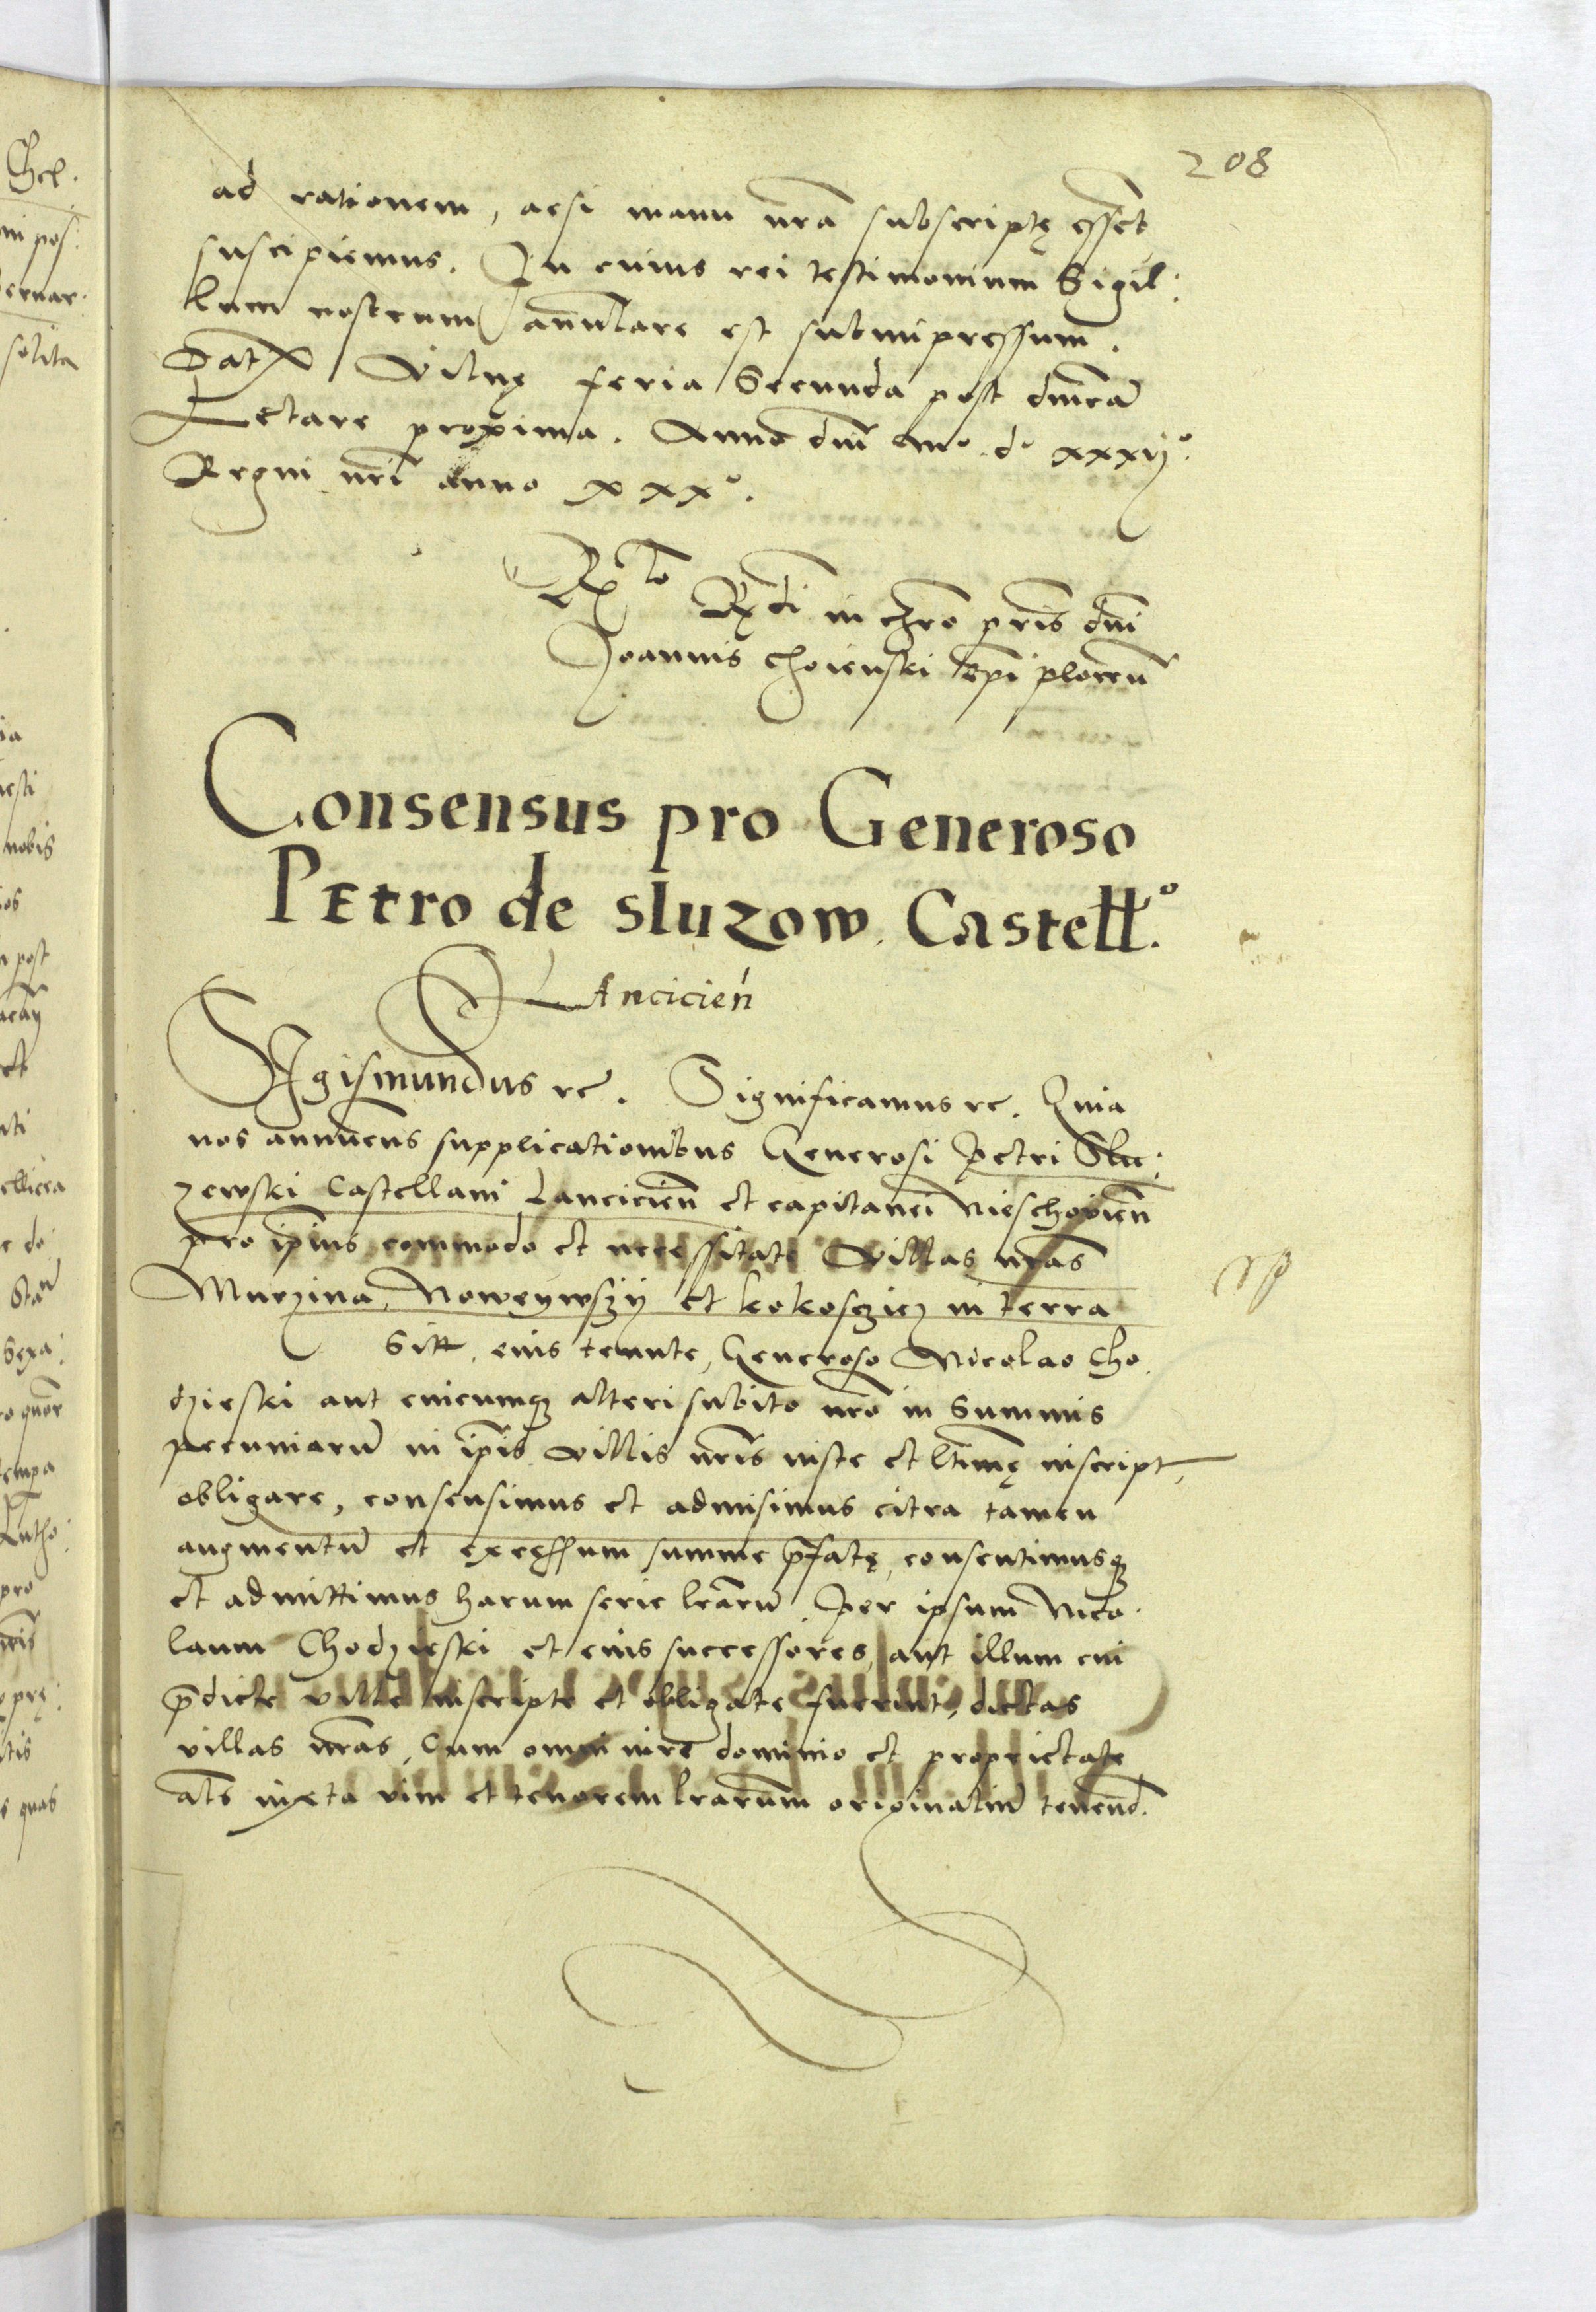 208
ad rationem, acsi manu nrã subscriptę essẽt
suscipiemus. In cuius rei testimonium Sigil:
lum nostrum añulare est subimpressum.
Dat̃ Vilnę feria Secunda post dñicã
Letare proxima. Anno dñi mº. dº xxxijº.
Regni nr̃i anno xxxº.
Rlo Rdi in chro pris dñi
Joannis choienski Epi plocen̄
Consensus pro Generoso
Petro de sluzow. Castell.º
Lancicień
Sigismundus rc. Significamus rc. Quia
nos annuens supplicationibus Generosi Petri Slu:
zewski Castellani Lancicien̄ et capitanei Nieschovien̄
pro ip̃ius commodo et necessitate villas nr̃as
Murzina, Noweywszy et kokosczicz in terra
Sitt. eius tenute, Generoso Nicolao Cho.
dzieski aut cuicumq3 alteri subito nr̃o in Summis
pecuniarũ in ip̃is villis nr̃is iuste et ltimę inscript,
obligare, consensimus et admisimus citra tamen
augmentũ et excęssum summe p̃fatę, consentimusq3
et admittimus harum serie lr̃arũ. Per ipsum Nico.
laum Chodzieski et eius successores, aut illum cui
p̃dicte ville inscripte et obligate fuerint, dictas
villas nr̃as, Cum omni iure dominio et proprietate
alr̃s iuxta vim et tenorem lr̃arum originaliũ tenend.